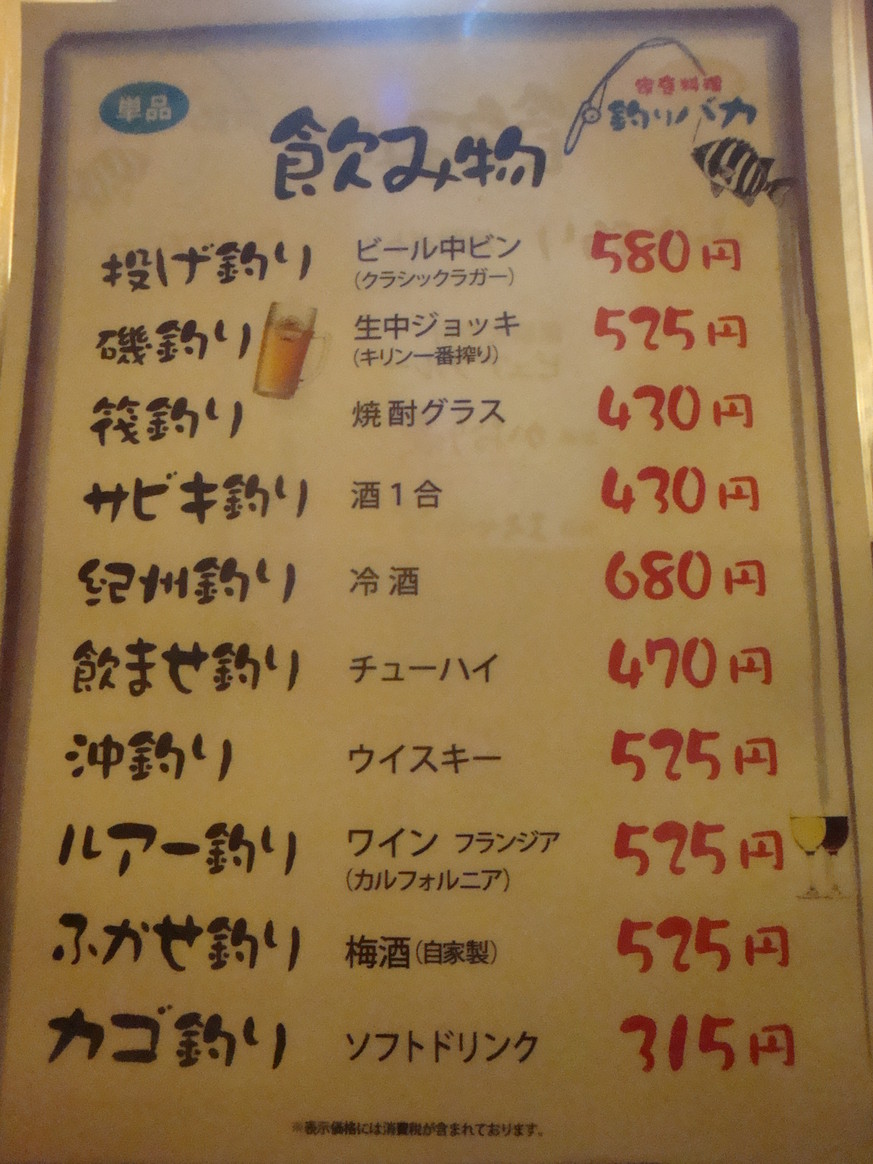 単品
家庭料理
釣りバカ
飲み物
投げ釣り ビール中ビン 580円
(クラシックラガー)
磯釣り 生中ジョッキ 525円
(キリン一番搾り)
筏釣り 焼酎グラス 430円
サビキ釣り 酒1合 430円
紀州釣り 冷酒 680円
飲ませ釣り チューハイ 470円
沖釣り ウイスキー 525円
ルアー釣り ワイン フランジア 525円
(カルフォルニア)
ふかせ釣り 梅酒(自家製) 525円
カゴ釣り ソフトドリンク 315円
※表示価格には消費税が含まれております。